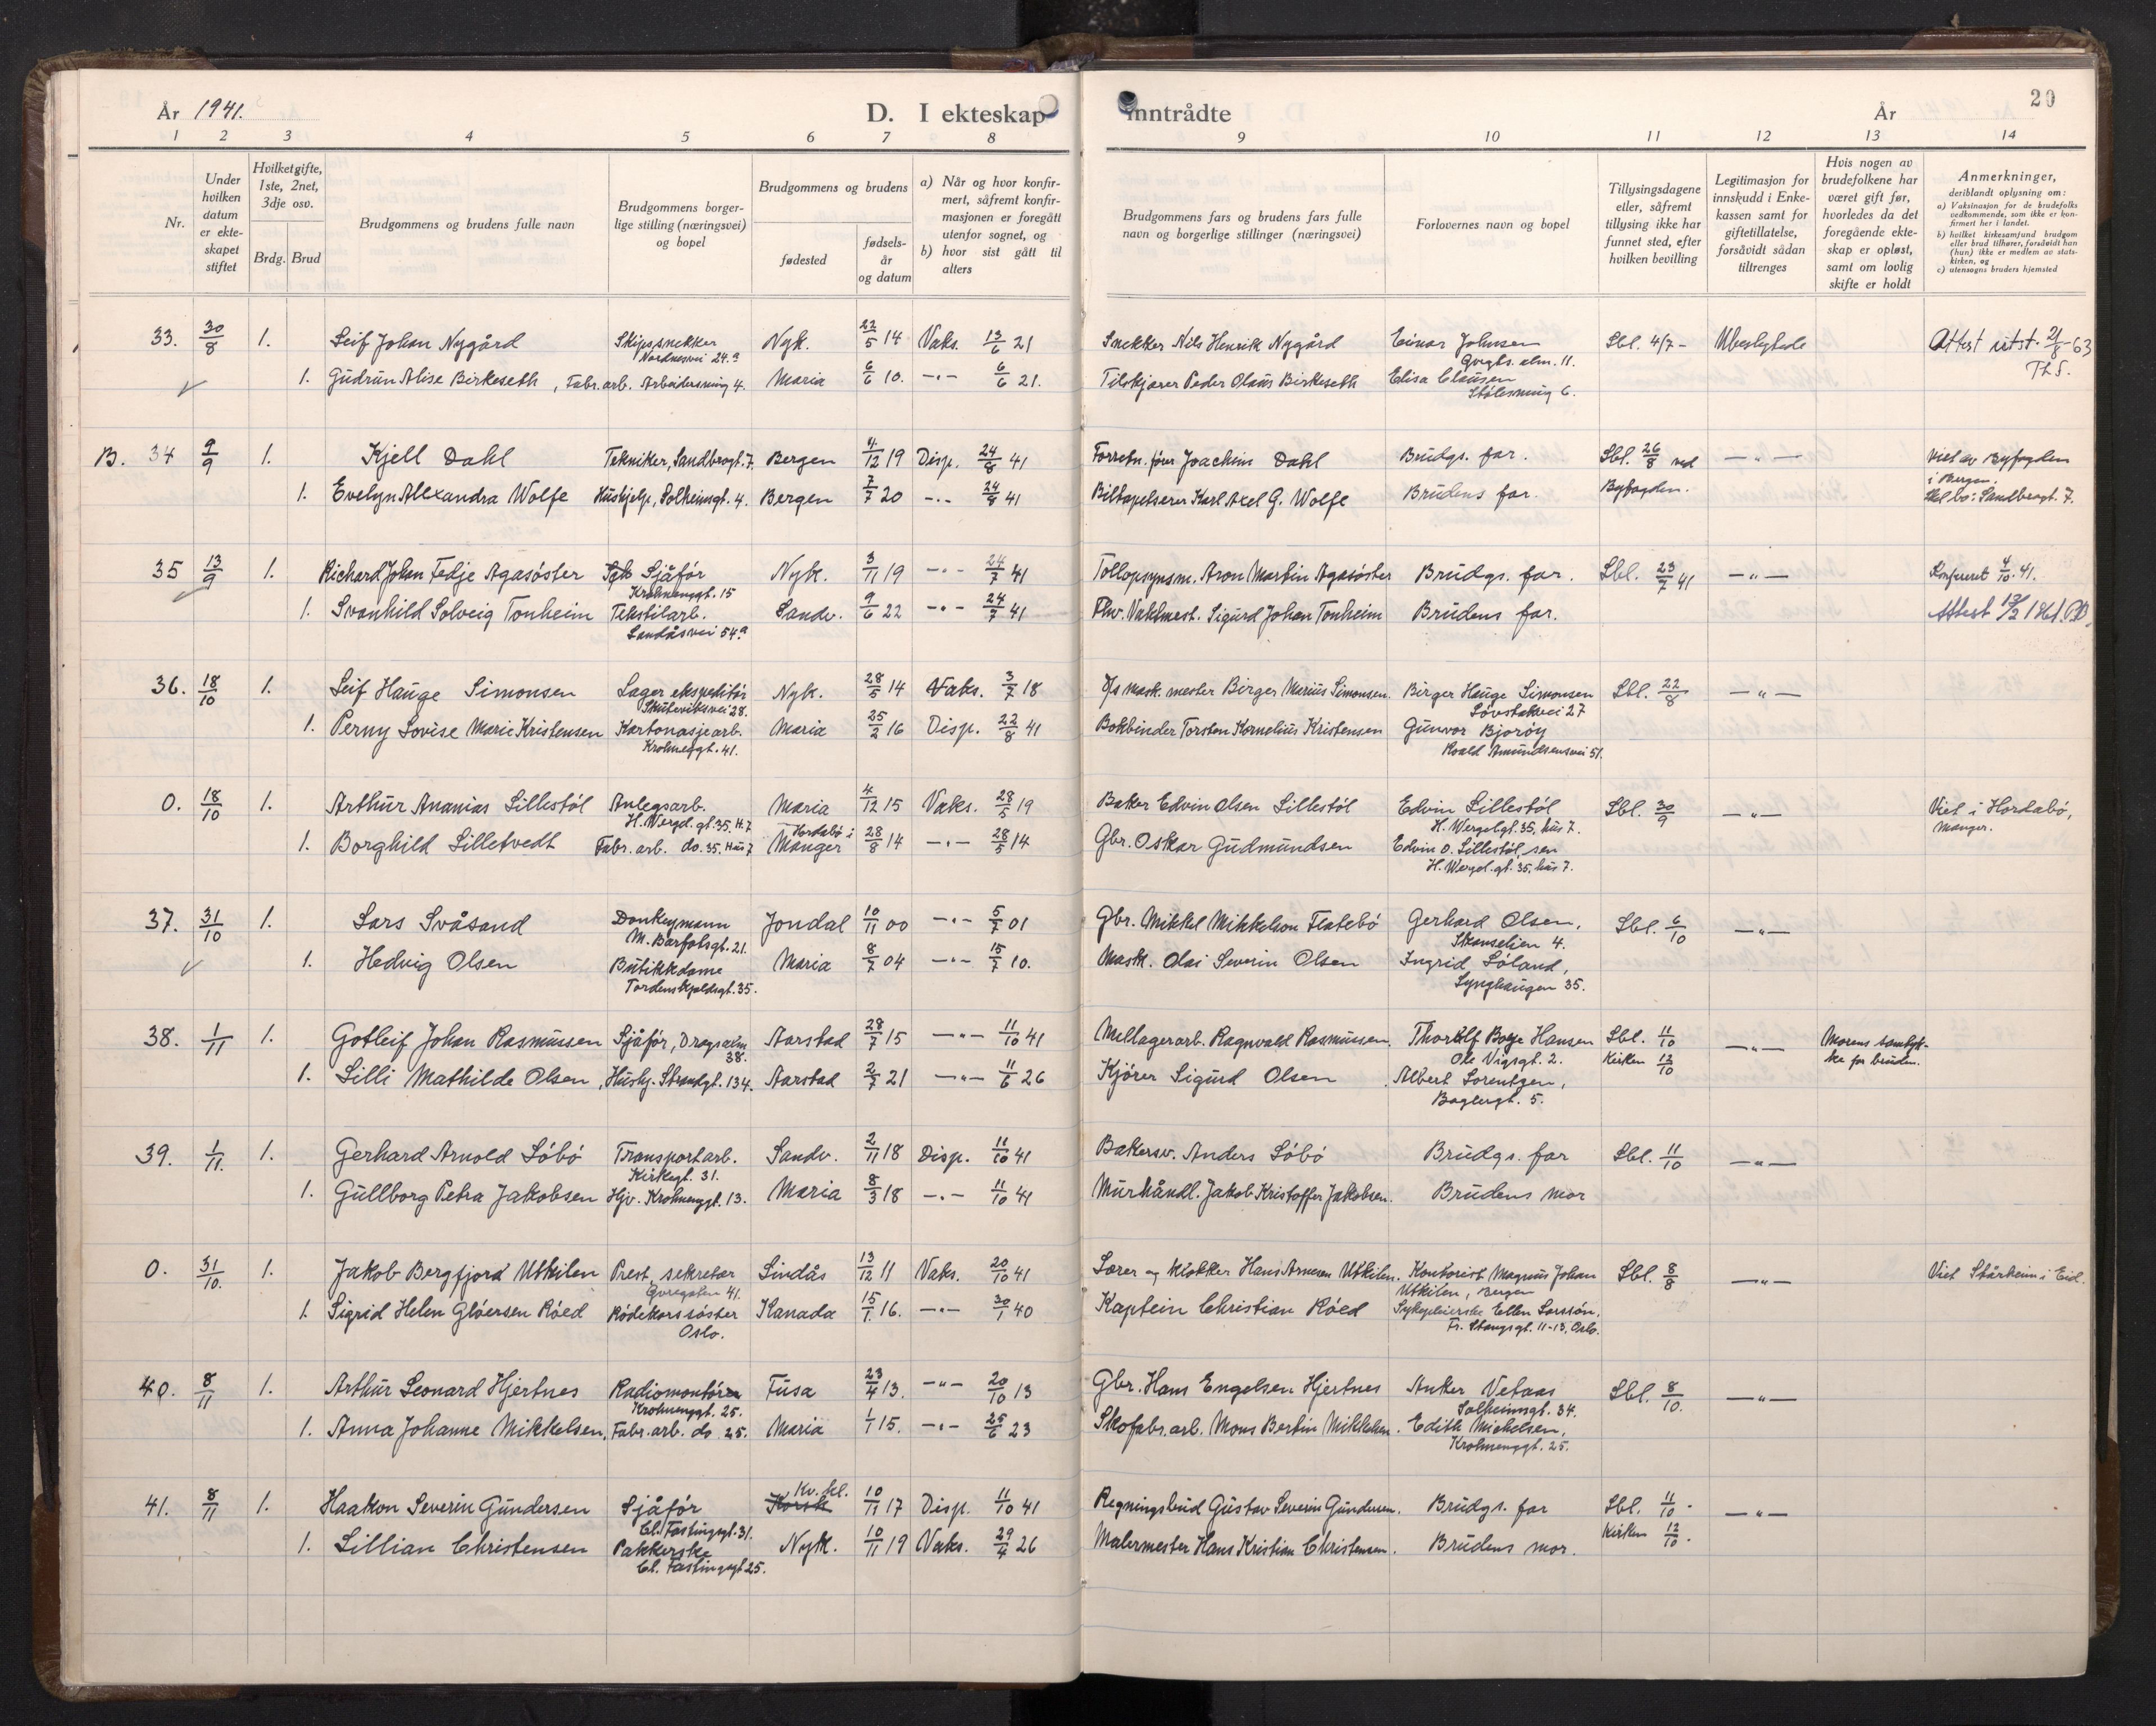 År 1941.
D. I ekteskap inntrådte
År
20
1 2 3 4 5 6 7 8 9 10 11 12 13 14
Nr.
Under hvilken datum er ekteskapet stiftet
Hvilket gifte, 1ste, 2net, 3dje osv.
Brdg. Brud
Brudgommens og brudens fulle navn
Brudgommens borgerlige stilling (næringsvei) og bopel
Brudgommens og brudens
fødested
fødselsår og datum
a) Når og hvor konfirmert, såfremt konfirmasjonen er foregått utenfor sognet, og
b) hvor sist gått til alters
Brudgommens fars og brudens fars fulle navn og borgerlige stillinger (næringsvei)
Forlovernes navn og bopel
Tillysingsdagene eller, såfremt tillysing ikke har funnet sted, efter hvilken bevilling
Legitimasjon for innskudd i Enkekassen samt for giftetillatelse, forsåvidt sådan tiltrenges
Hvis nogen av brudefolkene har været gift før, hvorledes da det foregående ekteskap er opløst, samt om lovlig skifte er holdt
Anmerkninger,
deriblandt oplysning om:
a) Vaksinasjon for de brudefolks vedkommende, som ikke er konfirmert her i landet.
b) hvilket kirkesamfund brudgom eller brud tilhører, forsåvidt han (hun) ikke er medlem av statskirken, og
c) utensogns bruders hjemsted
33. 30/8 1. Leif Johan Nygård Skipssnekker Nyk. 22/5 14 Vaks. 13/6 21 Snekker Nils Henrik Nygård Einar Johnsen Lbl. 4/7 - Ubeslegtede Attest utst. 21/8-63
Nordnesvei 24.a alm. 11. Th S.
1. Gudrun Alise Birkeseth, Fabr.arb. Arbeidersmug 4. Maria 6/6 10. -"- 6/6 21. Peder Olaus Birkeseth Elisa Clausen
Stølesmug 6.
B. 34 9/9 1. Kjell Dahl Tekniker, Sandbrogt. 7. Bergen 4/12 19 Disp. 24/8 41 Forretn.fører Joachim Dahl Brudgs. far. Lbl. 26/8 ved -"- Viet av Byfogden
i Bergen.
1. Evelyn Alexandra Wolfe Hushjelp, Solheimsgt. 4. Bergen 7/7 20 -"- 24/8 41 Biltapetserer Karl Axel G. Wolfe Brudens far. Byfogden. Skal bo: Sandbrogt. 7.
35 13/9 1. Richard Johan Fedje Agasøster Sjåfør Nyk. 3/11 19 -"- 24/7 41 Tollopsynsm. Aron Martin Agasøster Brudgs. far. Lbl. 23/7 41 -"- Konferert 4/10. 41.
Krohnenggt. 15
1. Svanhild Solveig Tonheim Tekstilarb. Sandv. 9/6 22 -"- 24/7 41 Fhv. Vaktmest. Sigurd Johan Tonheim Brudens far. Attest
Landåsvei 54.a
36. 18/10 1. Leif Hauge Simonsen Lager ekspeditør Nyk. 28/5 14 Vaks. 3/7 18 mask.mester Birger Marius Simonsen. Birger Hauge Simonsen Lbl. 22/8 -"-
Skuteviksvei 28. Løvstakvei 27
1. Perny Lovise Marie Kristensen Kartonasjearb. Maria 25/2 16 Disp. 22/8 41 Bokbinder Torsten Kornelius Kristensen Gunvor Bjorøy
Krohnenggt. 41. Roald Amundsensvei 51.
0. 18/10 1. Arthur Ananias Lillestøl Anlegsarb. Maria 4/12 15 Vaks. 28/5 19 Baker Edvin Olsen Lillestøl Edvin Lillestøl Lbl. 30/9 -"- Viet i Hordabø,
H. Wergel.gt. 35. H. 7 Hordabø i H. Wergelgt. 35, hus 7. Manger.
1. Borghild Lilletvedt Fabr.arb. do. 35. Hus 7 Manger 28/8 14 -"- 28/5 14 Gbr. Oskar Gudmundsen Edvin O. Lillestøl, sen
H. Wergel.gt. 35, hus 7.
37. 31/10 1. Lars Svåsand Donkeymann Jondal 10/11 00 -"- 5/7 01 Gbr. Mikkel Mikkelson Flatebø Gerhard Olsen, Lbl. 6/10 -"-
M. Barfotsgt. 21. Skanselien 4.
1. Hedvig Olsen Butikkdame Maria 8/7 04 -"- 15/7 10. Mask. Olai Severin Olsen Ingrid Søland,
Tordenskjoldsgt. 35. Lynghaugen 35.
38. 1/11 1. Gotleif Johan Rasmussen Sjåfør, Dragsalm. 38. Aarstad 28/7 15 -"- 11/10 41 Mellagerarb. Ragnvald Rasmussen. Thorolf Borge Hansen Lbl. 11/10 -"- Morens samtyk-
Ole Vigsgt. 2. Kirken 12/10 ke for bruden.
1. Lilli Mathilde Olsen, Hushj. Strandgt. 134. Aarstad 2/7 21 -"- 11/6 26 Kjører Sigurd Olsen Albert Lorentzen,
Baglergt. 5.
39. 1/11. 1. Gerhard Arnold Løbø Transportarb. Sandv. 2/11 18 Disp. 11/10 41 Bakersv. Anders Løbø Brudgs. far Lbl. 11/10 -"-
Kirkegt. 31.
1. Gullborg Petra Jakobsen Hjv. Krohnenggt. 13. Maria 8/3 18 -"- 11/10 41 Murhåndl. Jakob Kristoffer Jakobsen. Brudens mor
0. 31/10. 1. Jakob Bergfjord Utkilen Prest, sekretær Lindås 13/12 11 Vaks. 20/10 41 Lærer og klokker Hans Arnesen Utkilen. Kontorist Magnus Johan Lbl. 8/8 -"- Viet Stårheim i Eid.
41. Utkilen, Bergen
1. Sigrid Helen Gløersen Røed Rødekorssøster Kanada 15/1 16. -"- 30/1 40 Kaptein Christian Røed Sykepleierske Ellen Larssøn,
Oslo. Fr. Stangsgt. 11-13, Oslo.
40. 8/11 1. Arthur Leonard Hjertnes Radiomontør Fusa 23/4 13. -"- 20/10 13 Gbr. Hans Engelsen Hjertnes Anker Vetaas Lbl. 8/10. -"-
Krohnenggt. 25. Solheimsgt. 34.
1. Anna Johanne Mikkelsen, Fabr.arb. do 25. Maria 1/1 15. -"- 25/6 23 Skofabr.arb. Mons Bertin Mikkelsen. Edith Mickelsen,
Krohnenggt. 25.
41. 8/11 1. Haakon Severin Gundersen Sjåfør Korsk Kv. kl. 10/11 17 Disp. 11/10 41 Regningsbud Gustav Severin Gundersen. Brudgs. far Lbl. 11/10. -"-
Cl. Fastingsgt. 31. Kirken 12/10.
1. Lillian Christensen Pakkerske Nyk. 10/11 19 Vaks. 29/4 26 Malermester Hans Kristian Christensen. Brudens mor.
Cl. Fastingsgt 25.